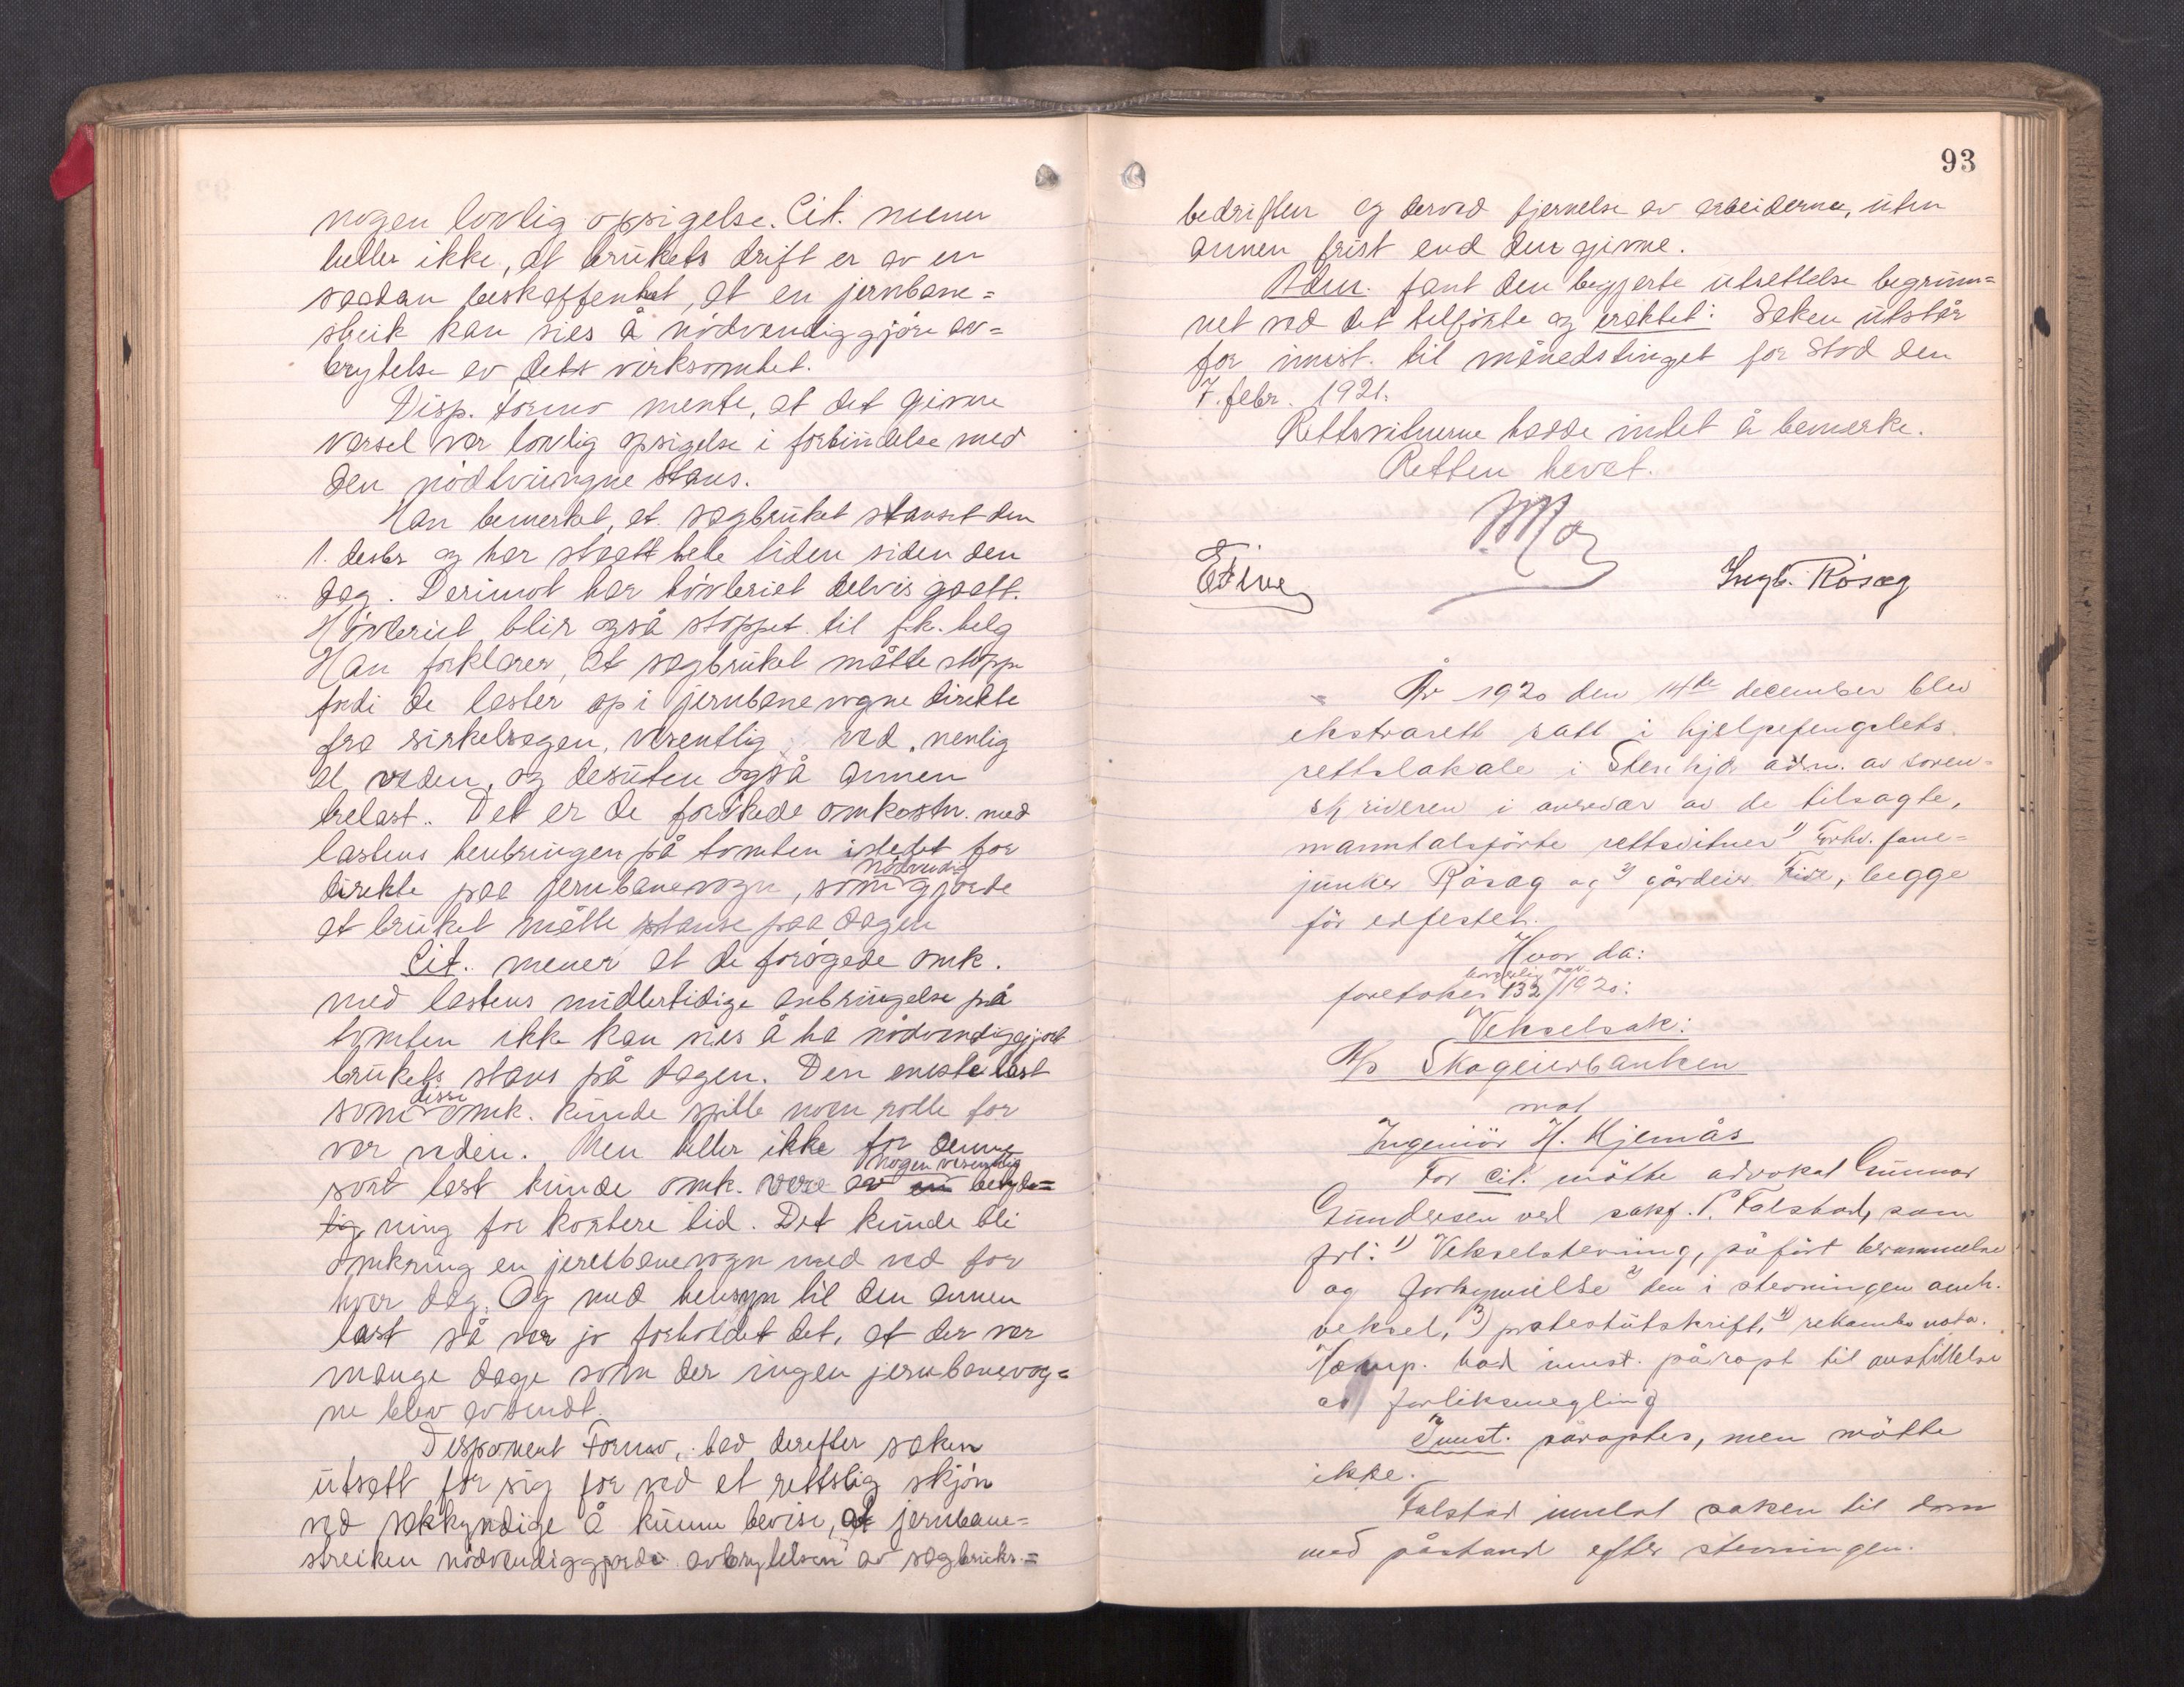 nogen lovlig opsigelse. Cit. mener
heller ikke, at brukets drift er av en
saadan beskaffenhet, at en jernbane=
streik kan sies å nödvendiggjöre av=
brytelse av dets virksomhet.
Disp. Formo mente, at det givne
varsel var lovlig opsigelse i forbindelse med
den nödtvungne stans.
Han bemerket, at sagbruket stanset den
1. desbr og har staatt hele tiden siden den
dag. Derimot har hövleriet delvis gaatt.
Hövleriet blir også stoppet til f.k. helg
Han forklarer, at sagbruket måtte stoppe
fordi de laster op i jernbanevogne direkte
fra sirkelsagen, vesentlig ved, nemlig
al veden, og desuten også annen
trelast. Det er de forökede omkostn. med
lastens henbringen på tomten istedet for
direkte paa jernbanevogn, som nödvendig gjorde
at bruket måtte stanse paa dagen
Cit. mener at de forögede omk.
med lastens midlertidige anbringelse på
tomten ikke kan sies å ha nödvendiggjort
brukets stans på dagen. Den eneste last
som disse omk. kunde spille noen rolle for
var veden. Men heller ikke for denne
sort last kunde omk. være av nogen vesentlig betyd=
ning for kortere tid. Det kunde bli
omkring en jernbanevogn med ved for
hver dag. Og med hensyn til den annen
last så var jo forholdet det, at der var
mange dage som der ingen jernbanevog=
ne blev avsendt.
Disponent Formo, bad derefter saken
utsatt for sig for ved et rettslig skjön
ved sakkyndige å kunne bevise, at jernbane=
streiken nödvendiggjorde avbrytelsen av sagbruks=
93
bedriften og derved fjernelse av arbeiderne, uten
annen frist end den givne.
Adm. fant den begjerte utsettelse begrun=
net ved det tilförte og eraktet: Saken utstår
for innst. til månedstinget for Stod den
7. febr. 1921.
Rettsvitnerne hadde intet å bemerke.
Retten hevet.
Ingb. Rösag
År 1920 den 14de december blev
ekstrarett satt i hjelpefengslets
rettslokale i Stenkjær adm. av soren=
skriveren i overvær av de tilsagte,
manntalsförte rettsvitner 1) Forhv. fane=
junker Rösag og 2) gårdeier Five, begge
för edfestet.
Hvor da:
foretokes borgerlig sak 132/1920:
Vekselsak:
A/s Skogeierbanken
mot
Ingeniör H. Hjemås
For cit. mötte advokat Gunnar
Gundersen ved sakf. P. Falstad, som
frl: 1) Vekselstevning, påfört berammelse
og forkynnelse 2) den i stevningen omh.
veksel, 3) protestutskrift, 4) rekambo nota.
Komp. bad innst. påropt til anstillelse
av forliksmegling
Innst. påroptes, men mötte
ikke.
Falstad innlot saken til dom
med påstand efter stevningen.